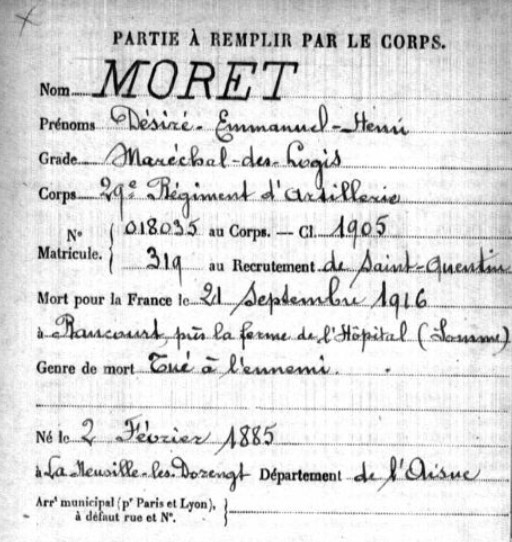 PARTIE À REMPLIR PAR LE CORPS.
Nom MORET
Prénoms Désiré-Emmanuel-Henri
Grade Maréchal-des-Logis
Corps 29e Régiment d'Artillerie
N° Matricule. { 018035 au Corps. — Cl. 1905
319 au Recrutement de Saint-Quentin
Mort pour la France le 21 Septembre 1916
à Rancourt, près la ferme de l'Hôpital (Somme)
Genre de mort Tué à l'ennemi.
Né le 2 Février 1885
à La Neuville-les-Dorengt Département de l'Aisne
Arrt municipal (pr Paris et Lyon),
à défaut rue et N°. {